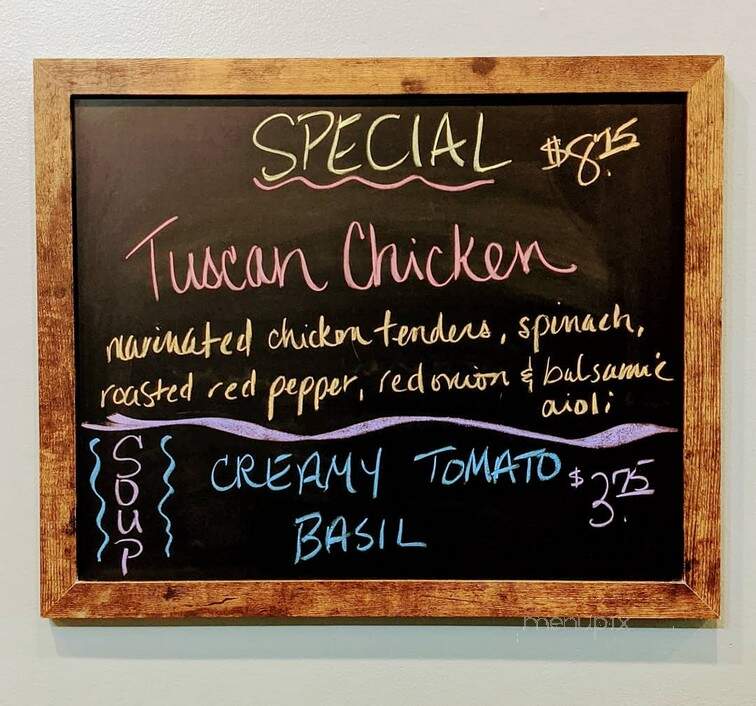 SPECIAL $8.75
Tuscan Chicken
marinated chicken tenders, spinach,
roasted red pepper, red onion & balsamic
aioli
SOUP
CREAMY TOMATO $3.75
BASIL
menupix